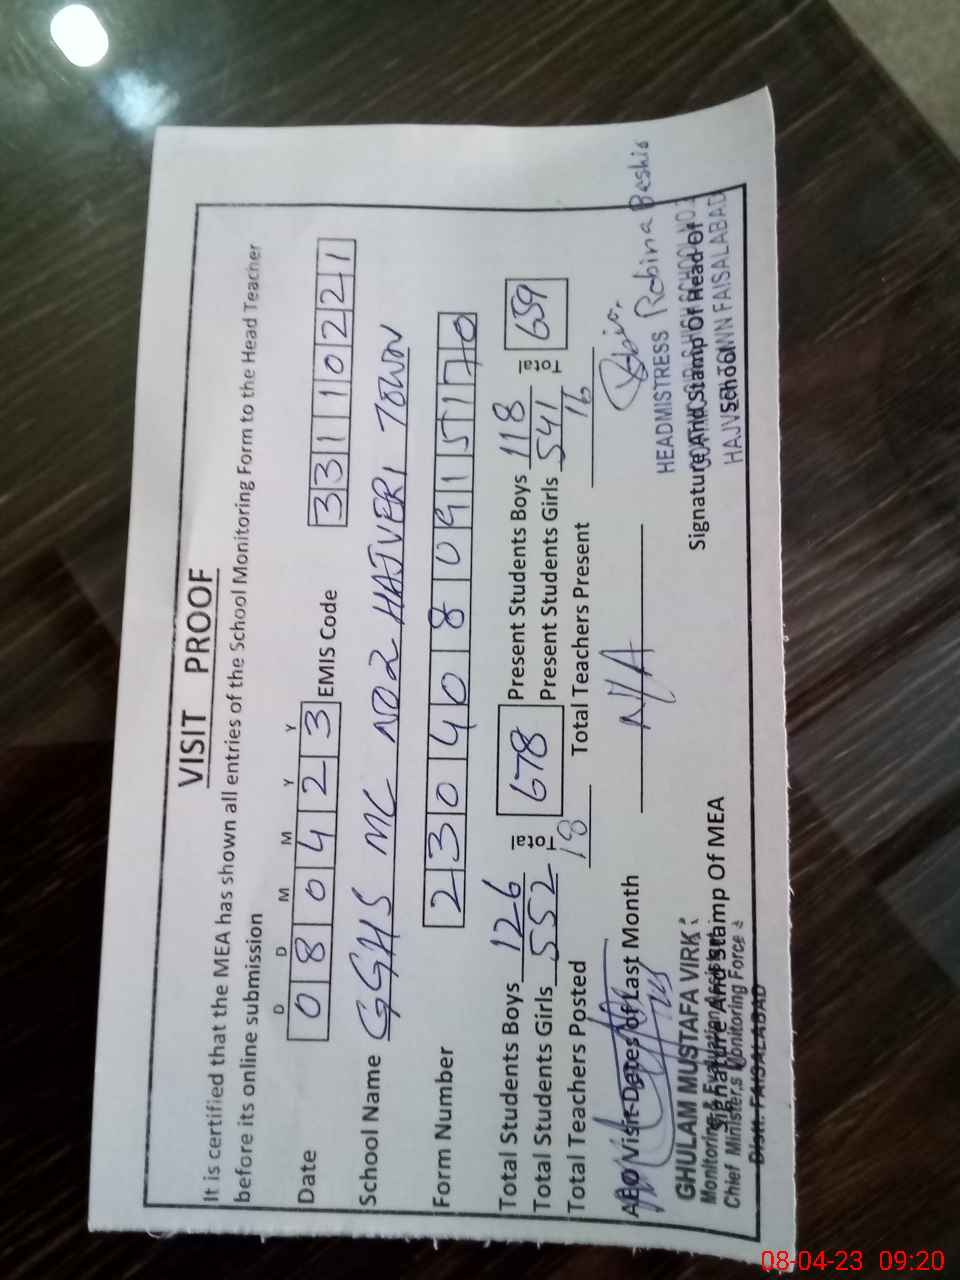 VISIT PROOF
It is certified that the MEA has shown all entries of the School Monitoring Form to the Head Teacher
before its online submission
D D M M Y Y
Date 0 8 0 4 2 3 EMIS Code 3 3 1 1 0 2 2 1
School Name GGHS MC NO2 HAJVERI TOWN
Form Number 2 3 0 4 0 8 0 9 1 5 1 7 0
Total Students Boys 126 Total 678 Present Students Boys 118 Total 659
Total Students Girls 552 Present Students Girls 541
Total Teachers Posted 18 Total Teachers Present 16
AEO Visit Dates of Last Month N/A
Robina Bashir
HEADMISTRESS
SCHOOL NO.
Signature And Stamp Of Head Of
School
HAJV TOWN FAISALABAD
GHULAM MUSTAFA VIRK
Monitoring & Evaluation
Signature And Stamp Of MEA
Chief Minister,s Monitoring Force
Distt. FAISALABAD
08-04-23 09:20